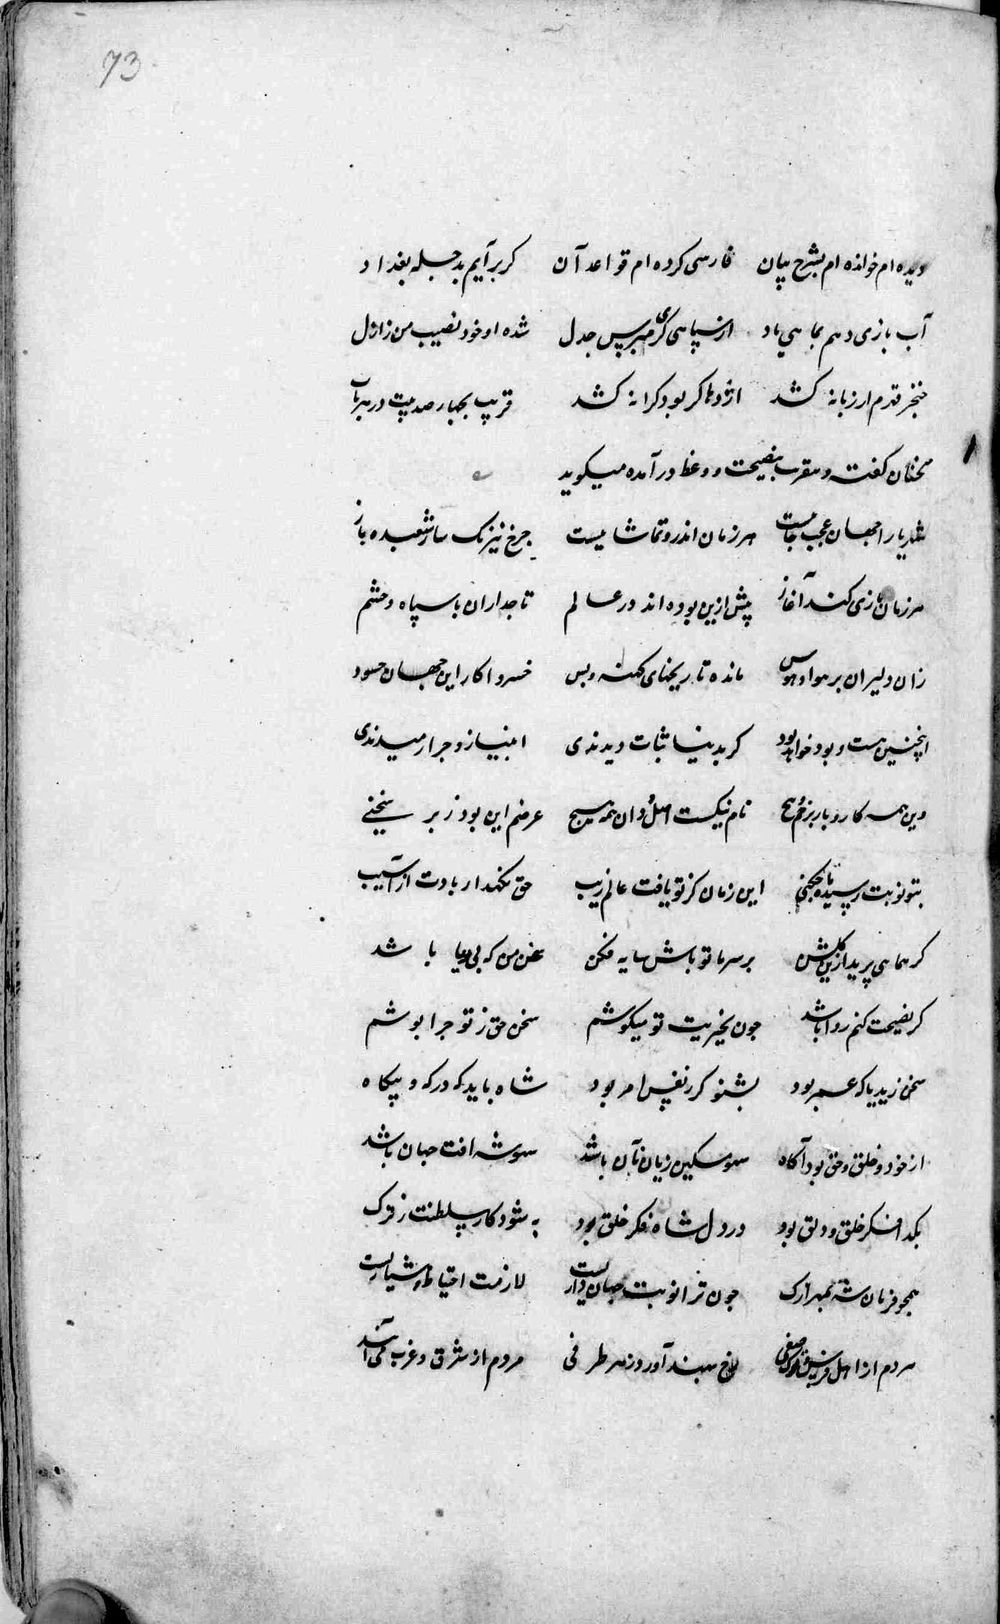 73
دیده ام خوانده ام بشرح بیان فارسی کرده ام قواعد آن کر برآیم بدجله بغداد
آب بازی دهم بماهی یاد از سپاهی کری مپرس جدل شده او خود نصیب من ز ازل
خنجر قدم ار زبانه کشد اژدها کر بود کرانه کشد قریب بچهار صد بیت در
سخنان گفته و بنصیحت و وعظ در آمده میکوید
شهریارا جهان عجب جائیست هر زمان اندرو تماشائیست چرخ نیرنک ساز شعبده باز
هر زمان بازی کند آغاز پیش ازین بوده اند در عالم تاجداران با سپاه و حشم
زان دلیران بر هوا و هوس مانده تاریخهای کهنه و بس خسروا کار این جهان حسود
اینچنین هست و بود خواهد بود کر بدنیا ثبات دیدندی انبیا زو چرا رمیدندی
وین همه کاروبار بر هیچ نام نیکست اصل و آن همه هیچ عرضم این بود ز بر سخنی
بتو نوبت رسیده این زمان کز تو یافت عالم زیب حق نکهدار بادت از آسیب
کر همای پرید ازین کلشن بر سر ما تو باش سایه فکن سخن من که بی ریا باشد
کر نصیحت کنم روا باشد چون بخیریت تو میکوشم سخن حق ز تو چرا پوشم
سخن زید یا که عمر بود بشنو کر نفس امر بود شاه باید که در که و بیکاه
از خود و خلق و حق بود آکاه سهو مسکین زیان نان باشد سهو شه افت جهان باشد
بکدا فکر خلق و دلق بود در دل شاه فکر خلق بود به شود کار سلطنت ز ترک
همچو فرمان شه چون ترا نوبت جهانداریست لازمت احتیاط و هشیاریست
مردم از اهل آورد ز هر طرفی مردم از شرق و غرب می آیند